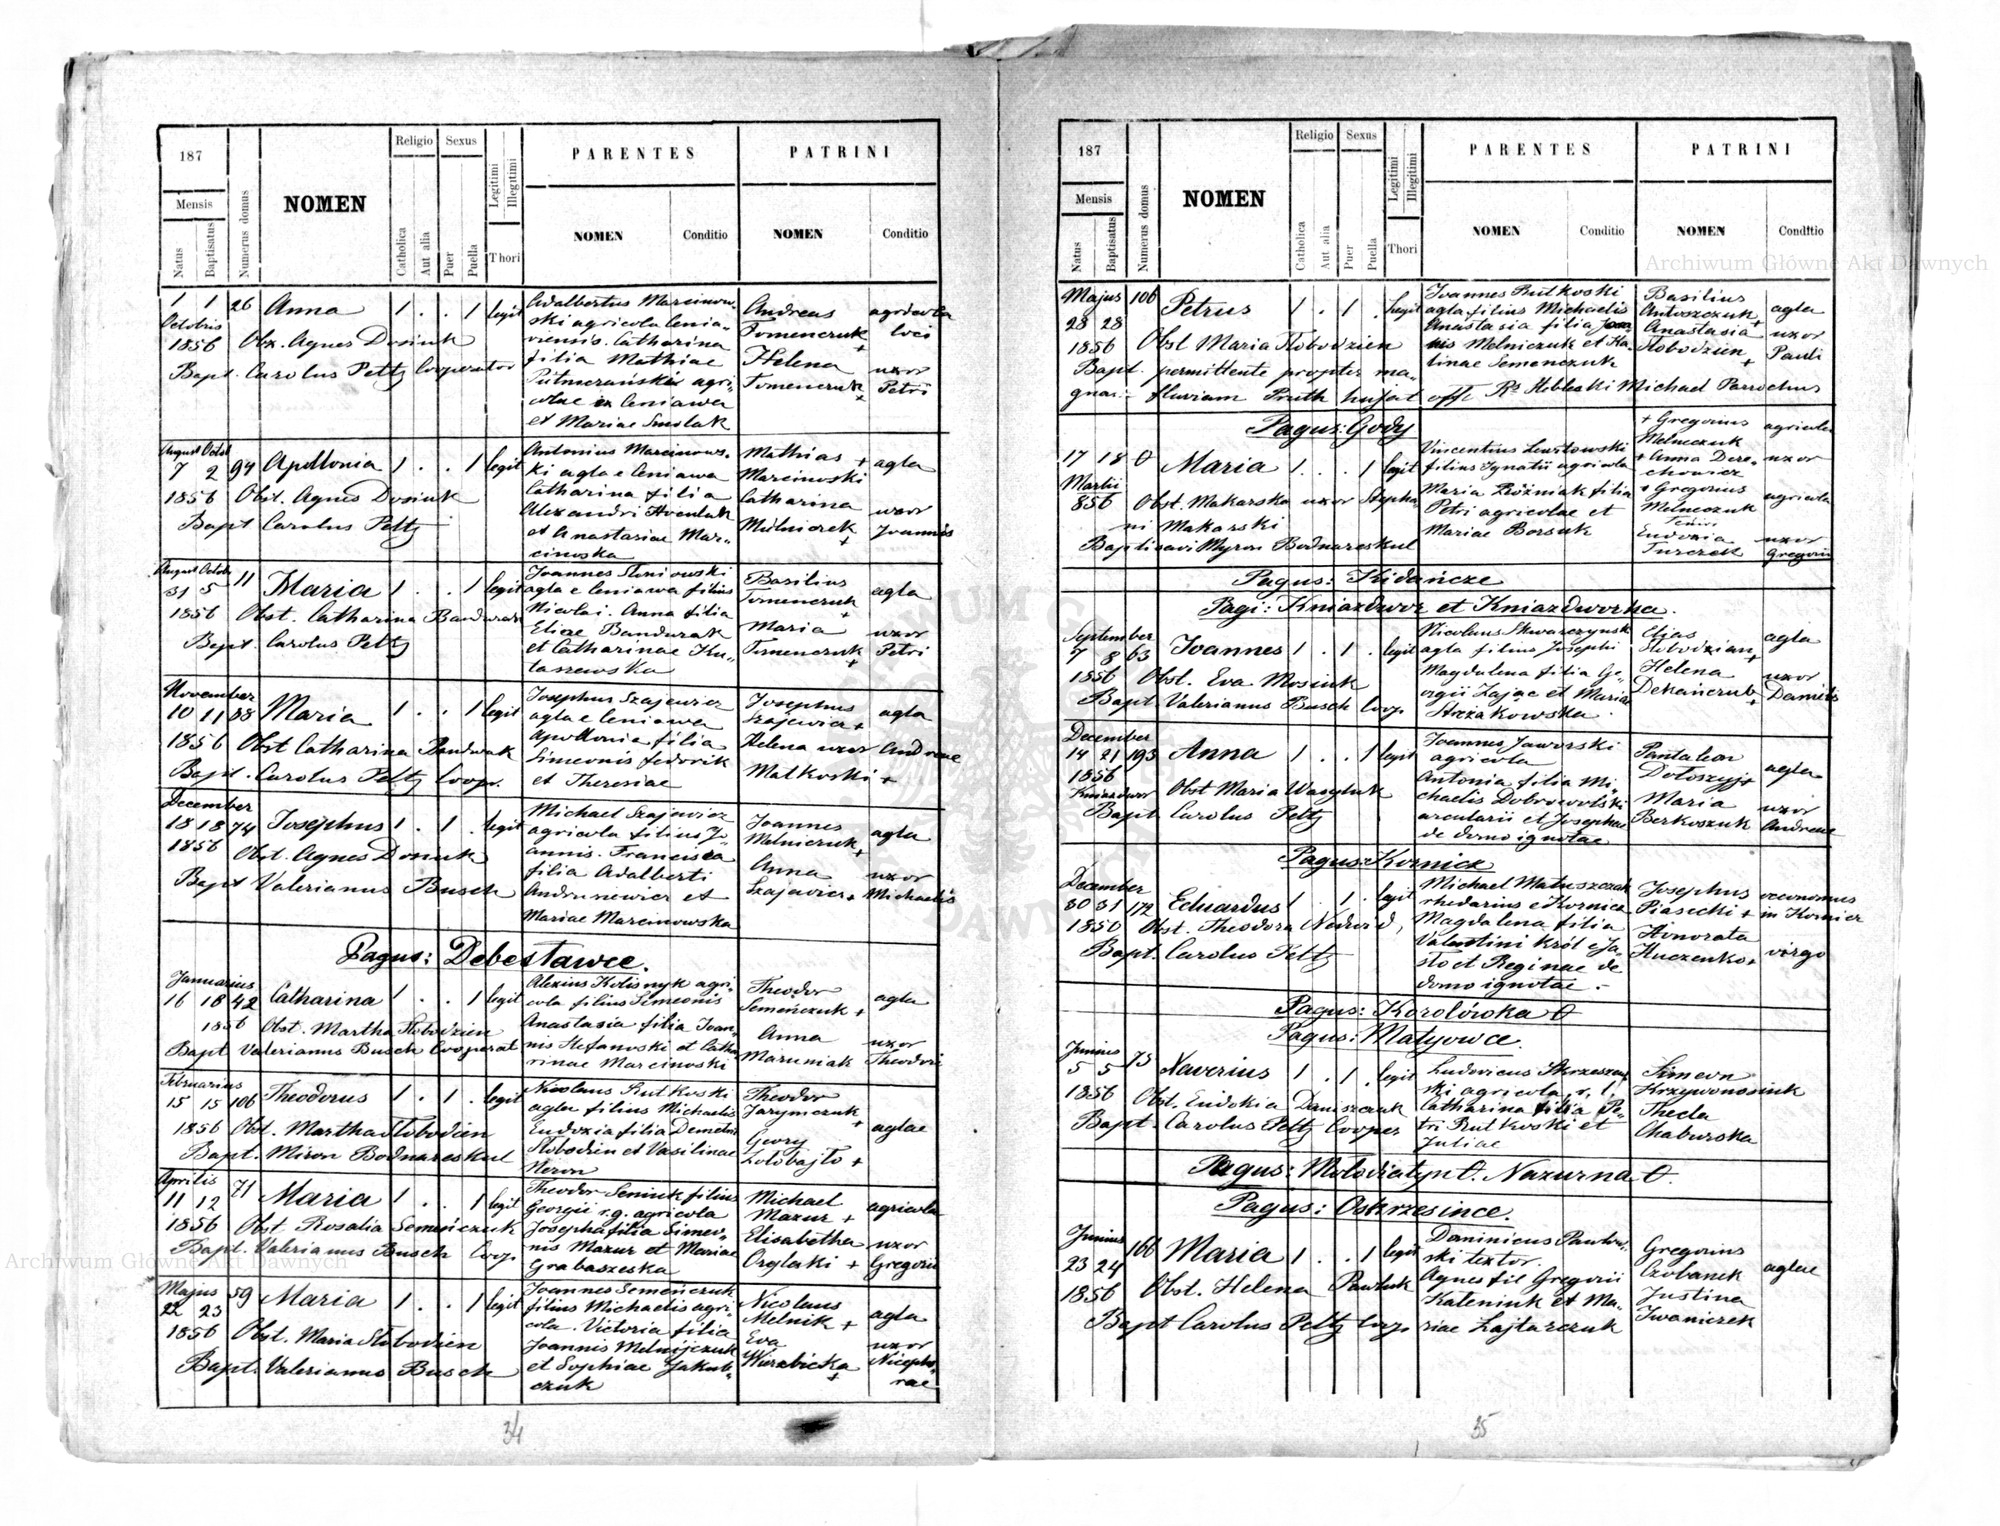 187
Mensis
Natus
Baptisatus
Numerus domus
NOMEN
Religio
Catholica
Aut alia
Sexus
Puer
Puella
Legitimi
Illegitimi
Thori
PARENTES
NOMEN
Conditio
PATRINI
NOMEN
Conditio
1 1 26 Anna 1 . . 1 legit
Octobris
1856 Obs. Agnes Dosiuk
Bapt. Carolus Peltz Cooperator
Adalbertus Marcinow-
ski agricola Cenia-
viensis. Catharina
filia Mathiae
agri-
colae ex Ceniawa
et Mariae Smolak
Andreas agricola
Tomenczuk + loci
Helena uxor
Tomenczuk + Petri
August Octob
7 2 94 Apollonia 1 . . 1 legit
1856 Obst. Agnes Dosiuk
Bapt Carolus Peltz
Antonius Marcinows-
ki agla e Ceniawa
Catharina filia
Alexandri
et Anastasiae Mar-
cinoska
Mathias + agla
Marcinoski
Catharina uxor
Melniczek + Joannis
August Octob
31 5 11 Maria 1 . . 1 legit
1856 Obst. Catharina Bandurak
Bapt. Carolus Peltz
Joannes Sloniowski
agla e Ceniawa filius
Nicolai. Anna filia
Eliae Bandurak
et Catharinae Ku-
taszewska
Basilius agla
Tomenczuk +
Maria uxor
Tomenczuk + Petri
November
10 11 88 Maria 1 . . 1 legit
1856 Obst Catharina Bandurak
Bapt. Carolus Peltz Coop.
Josephus Szajewicz
agla e Ceniawa
Apollonia filia
Simeonis Fedorik
et Theresiae
Josephus agla
Szajewicz +
Helena uxor Andreae
Malkoski +
December
18 18 74 Josephus 1 . 1 . legit
1856 Obst. Agnes Dosiuk
Bapt Valerianus Busch
Michael Szajewicz
agricola filius Jo-
annis. Francisca
filia Adalberti
Andruniewicz et
Mariae Marcinowska
Joannes agla
Melniczuk +
Anna uxor
Szajewicz + Michaelis
Pagus: Debestawce.
Januarius
16 18 42 Catharina 1 . . 1 legit
1856 Obst. Martha Slobodzien
Bapt Valerianus Busch Cooperat
Alexius Kolisnyk agri-
cola filius Simeonis
Anastasia filia Joan-
nis Stefanoski et Catha-
rinae Marcinoski
Theodor agla
Semeńczuk +
Anna uxor
Maruniak Theodori
Februarius
15 15 106 Theodorus 1 . 1 . legit
1856 Obst. Martha Slobodzien
Bapt. Miron Bodnareskul
Nicolaus Rutkoski
agla filius Michaelis
Eudoxia filia Demetrii
Slobodzien et Vasilinae
Neron
Theodor
Jarymczuk + aglae
Georg
Zolobajlo +
Aprilis
11 12 71 Maria 1 . . 1 legit
1856 Obst. Rosalia Semeńczuk
Bapt. Valerianus Busch Coop.
Theodor Seniuk filius
Georgii r.g. agricola
Josepha filia Simeo-
nis Mazur et Mariae
Grabaszeska
Michael agricola
Mazur +
Elisabetha uxor
Orglaki + Gregorii
Majus
22 23 59 Maria 1 . . 1 legit
1856 Obst. Maria Slobodzien
Bapt. Valerianus Busch
Joannes Semeńczuk
filius Michaelis agri-
cola. Victoria filia
Joannis Melnijczuk
et Sophiae Jakub-
czuk
Nicolaus agla
Melnik +
Eva uxor
Wierzbicka + Nicepho-
rae
34
187
Mensis
Natus
Baptisatus
Numerus domus
NOMEN
Religio
Catholica
Aut alia
Sexus
Puer
Puella
Legitimi
Illegitimi
Thori
PARENTES
NOMEN
Conditio
PATRINI
NOMEN
Conditio
Majus 106 Petrus 1 . 1 . legit
28 28
1856 Obst Maria Slobodzien
Bapt. permittente propter ma-
gnam fluvium Pruth hujat offi Rs Hoblaski Michael Parochus
Joannes Rutkoski
agla filius Michaelis
Anastasia filia Joan-
nis Melniczuk et Ka-
tinae Semenczuk
Basilius agla
Antoszczuk +
Anastasia uxor
Slobodzien + Pauli
Pagus: Gody
17 18 0 Maria 1 . . 1 legit
Martii
856 Obst. Makarska uxor Stepha-
ni Makarski
Baptisavi Myron Bodnareskul
Vincentius Lewitowski
filius Ignatii agricola
Maria Woźniak filia
Petri agricolae et
Mariae Borsuk
+ Gregorius agricola
Melneczuk
+ Anna Dere- uxor
chowicz
+ Gregorius agricola
Melneczuk
Eudoxia uxor
Turczek Gregorii
Pagus: Kidańcze
Pagi: Kniazdwor et Kniazdworka.
September
7 8 63 Joannes 1 . 1 . legit
1856 Obst. Eva Mosiuk
Bapt. Valerianus Busch Coop.
Nicolaus Skwarczynsk
agla filius Josephi
Magdalena filia Ge-
orgii Zając et Mariae
Strzakowska.
Elias agla
Slobodzian +
Helena uxor
Dekańczub + Danielis
December
14 21 193 Anna 1 . . 1 legit
1856
Kniazdwor Obst Maria Wasyluk
Bapt Carolus Peltz
Joannes Jaworski
agricola
Antonia filia Mi-
chaelis Dobrowolski
arcularii et Josephae
de domo ignotae
Pantaleon agla
Dołoszyj +
Maria uxor
Berkoszuk Andreae
Pagus: Kornicz
December
30 31 172 Eduardus 1 . 1 . legit
1850 Obst. Theodora Nedwid,
Bapt. Carolus Peltz
Michael Matuszczak
rhedarius e Kornicz
Magdalena filia
Valentini Król e Ja-
sło et Reginae de
domo ignotae.
Josephus oeconomus
Piasecki + in Kornicz
Honorata
Huczenko + virgo
Pagus: Korolówka 0
Pagus: Matyowce.
Junius
5 5 73 Xaverius 1 . 1 . legit
1856 Obst. Eudokia Daniszczuk
Bapt. Carolus Peltz Cooper
Ludovicus Skrzeszew
ski agricola, r. l.
Catharina filia Pe-
tri Rutkoski et
Juliae
Simeon
Krzywonosiuk
Thecla
Chaburska
Pagus: Mołodiatyn 0. Nazurna 0.
Pagus: Oskrzesince.
Junius
23 24 166 Maria 1 . . 1 legit
1856 Obst. Helena Pawluk
Bapt Carolus Peltz Coop.
Dominicus Pawłow-
ski textor.
Agnes fil Gregorii
Kateniuk et Ma-
riae Lajtarczuk
Gregorius
Czobanek aglae
Justina
Iwaniczek
35
Archiwum Główne Akt Dawnych
Archiwum Główne Akt Dawnych
ARCHIWUM GŁÓWNE AKT DAWNYCH